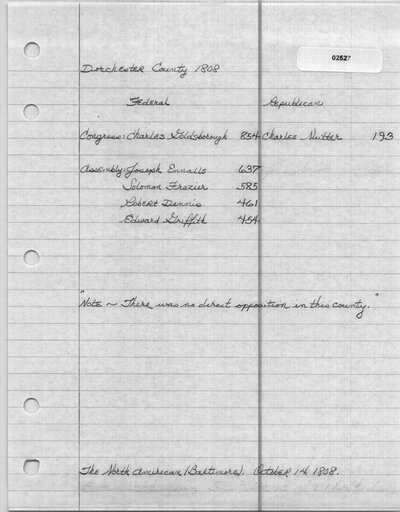 02527
Dorchester County 1808
Federal Republican
Congress: Charles Goldsborough 854 Charles Nutter 193
Assembly: Joseph Ennalls 637
Solomon Frazier 585
Robert Dennis 461
Edward Griffith 454
"Note ~ There was no direct opposition in this county."
The North American (Baltimore). October 14 1808.